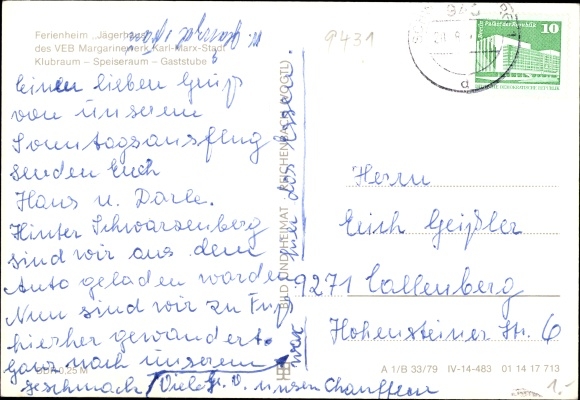 Ferienheim „Jägerhaus“
des VEB Margarinewerk Karl-Marx-Stadt
Klubraum – Speiseraum – Gaststube
Einen lieben Gruß
von unserem
Sonntagsausflug
senden Euch
Hans u. Darle.
Hinter Schwarzenberg
sind wir aus dem
Auto geladen worden
Nun sind wir zu Fuß
hierher gewandert.
Ganz nach unserem
Geschmack / Viele Gr. v. unsern Chauffeur
war das Essen
DDR 0,25 M
BILD UND HEIMAT REICHENBACH (VOGTL)
9431
Berlin, Palast der Republik
10
DEUTSCHE DEMOKRATISCHE REPUBLIK
a
Herrn
Erich Geißler
9271 Callenberg
Hohensteiner Str. 6
A 1/B 33/79 IV-14-483 01 14 17 713
1.-